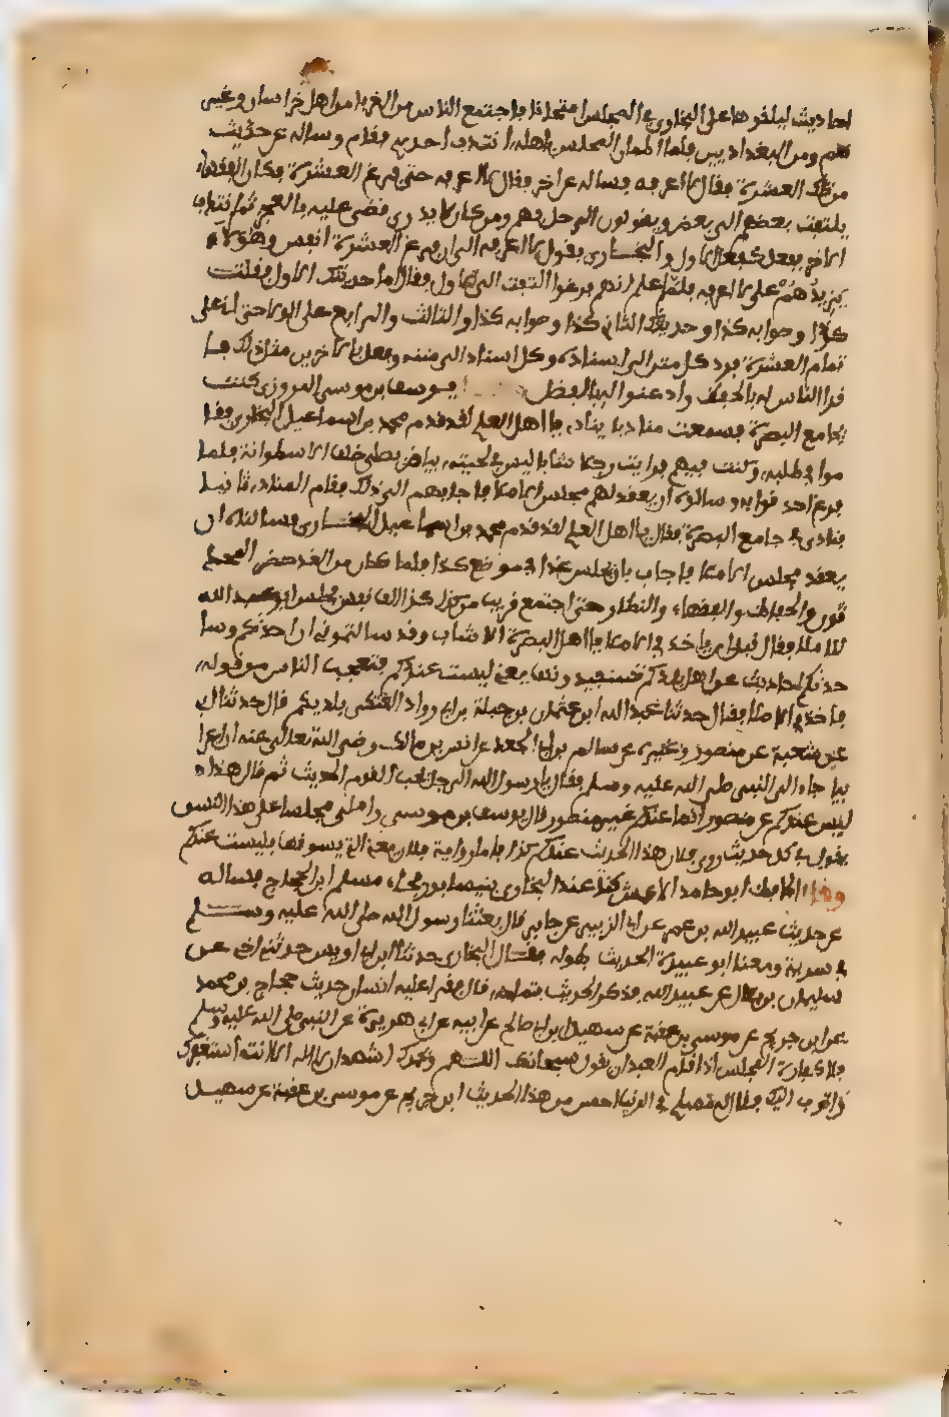 احاديث ليلقوها على البخاري في المجلس امتحانا فاجتمع الناس من الغربا من اهل خراسان وغير
هم ومن البغداديين فلما اطمان المجلس باهله انتدب احدهم فقام وساله عن حديث
من تلك العشرة فقال لا اعرفه فساله عن اخر فقال لا اعرفه حتى فرغ العشرة فكان الفقهاء
يلتفت بعضهم الى بعض ويقولون الرجل فهم ومن كان لا يدري قضى عليه بالعجز ثم انتدب
اخر ففعل كفعل الاول والبخاري يقول لا اعرفه الى ان فرغ العشرة انفس وهو لا
يزيدهم على لا اعرفه فلما علم انهم فرغوا التفت الى الاول فقال اما حديثك الاول فقلت
كذا وصوابه كذا وحديثك الثاني كذا وصوابه كذا والثالث والرابع على الولا حتى اتى على
تمام العشرة فرد كل متن الى اسناده وكل اسناد الى متنه وفعل بالاخرين مثل ذلك فا
قر الناس له بالحفظ واذعنوا له بالفضل يوسف بن موسى المروزي كنت
بجامع البصرة فسمعت مناديا ينادي يا اهل العلم لقد قدم محمد بن اسماعيل البخاري فقا
موا في طلبه وكنت فيهم فرايت رجلا شابا ليس في لحيته بياض يصلي خلف الاسطوانة فلما
فرغ احدقوا به وسالوه ان يعقد لهم مجلس الاملا فاجابهم الى ذلك فقام المنادي ثانيا
ينادي في جامع البصرة فقال يا اهل العلم لقد قدم محمد بن اسماعيل البخاري فسالناه ان
يعقد مجلس الاملا فاجاب بان يجلس غدا في موضع كذا فلما كان من الغد حضر المحد
ثون والحفاظ والفقهاء والنظار حتى اجتمع قريب من كذا كذا الف نفس فجلس ابو عبد الله
للاملا فقال قبل ان ياخذ في الاملا يا اهل البصرة انا شاب وقد سالتموني ان احدثكم وسا
حدثكم احاديث عن اهل بلدكم تستفيدونها يعني ليست عندكم فتعجب الناس من قوله
فاخذ في الاملا فقال حدثنا عبد الله ابن عثمان بن جبلة بن ابي رواد العتكي بلديكم قال حدثنا ابي
عن شعبة عن منصور وغيره عن سالم بن ابي الجعد عن انس بن مالك رضي الله تعالى عنه ان اعرا
بيا جاء الى النبي صلى الله عليه وسلم فقال يا رسول الله الرجل يحب القوم الحديث ثم قال هذا
ليس عندكم عن منصور انما عندكم غير منصور قال يوسف بن موسى واملى مجلسا على هذا النسق
يقول في كل حديث روى فلان هذا الحديث عندكم كذا فاما رواية فلان يعني التي يسوقها فليست عندكم
وقال الحافظ ابو حامد الاعمش كنا عند البخاري بنيسابور فجاء مسلم ابن الحجاج فساله
عن حديث عبيد الله بن عمر عن ابي الزبير عن جابر قال بعثنا رسول الله صلى الله عليه وسلم
في سرية ومعنا ابو عبيدة الحديث بطوله فقال البخاري حدثنا ابن ابي اويس حدثني اخي عن
سليمان بن بلال عن عبيد الله فذكر الحديث بتمامه قال فقرا عليه انسان حديث حجاج بن محمد
عن ابن جريج عن موسى بن عقبة عن سهيل بن ابي صالح عن ابيه عن ابي هريرة عن النبي صلى الله عليه وسلم
قال كفارة المجلس اذا قام العبد ان يقول سبحانك اللهم وبحمدك اشهد ان لا اله الا انت استغفرك
واتوب اليك فقال له مسلم في الدنيا احسن من هذا الحديث ابن جريج عن موسى بن عقبة عن سهيل